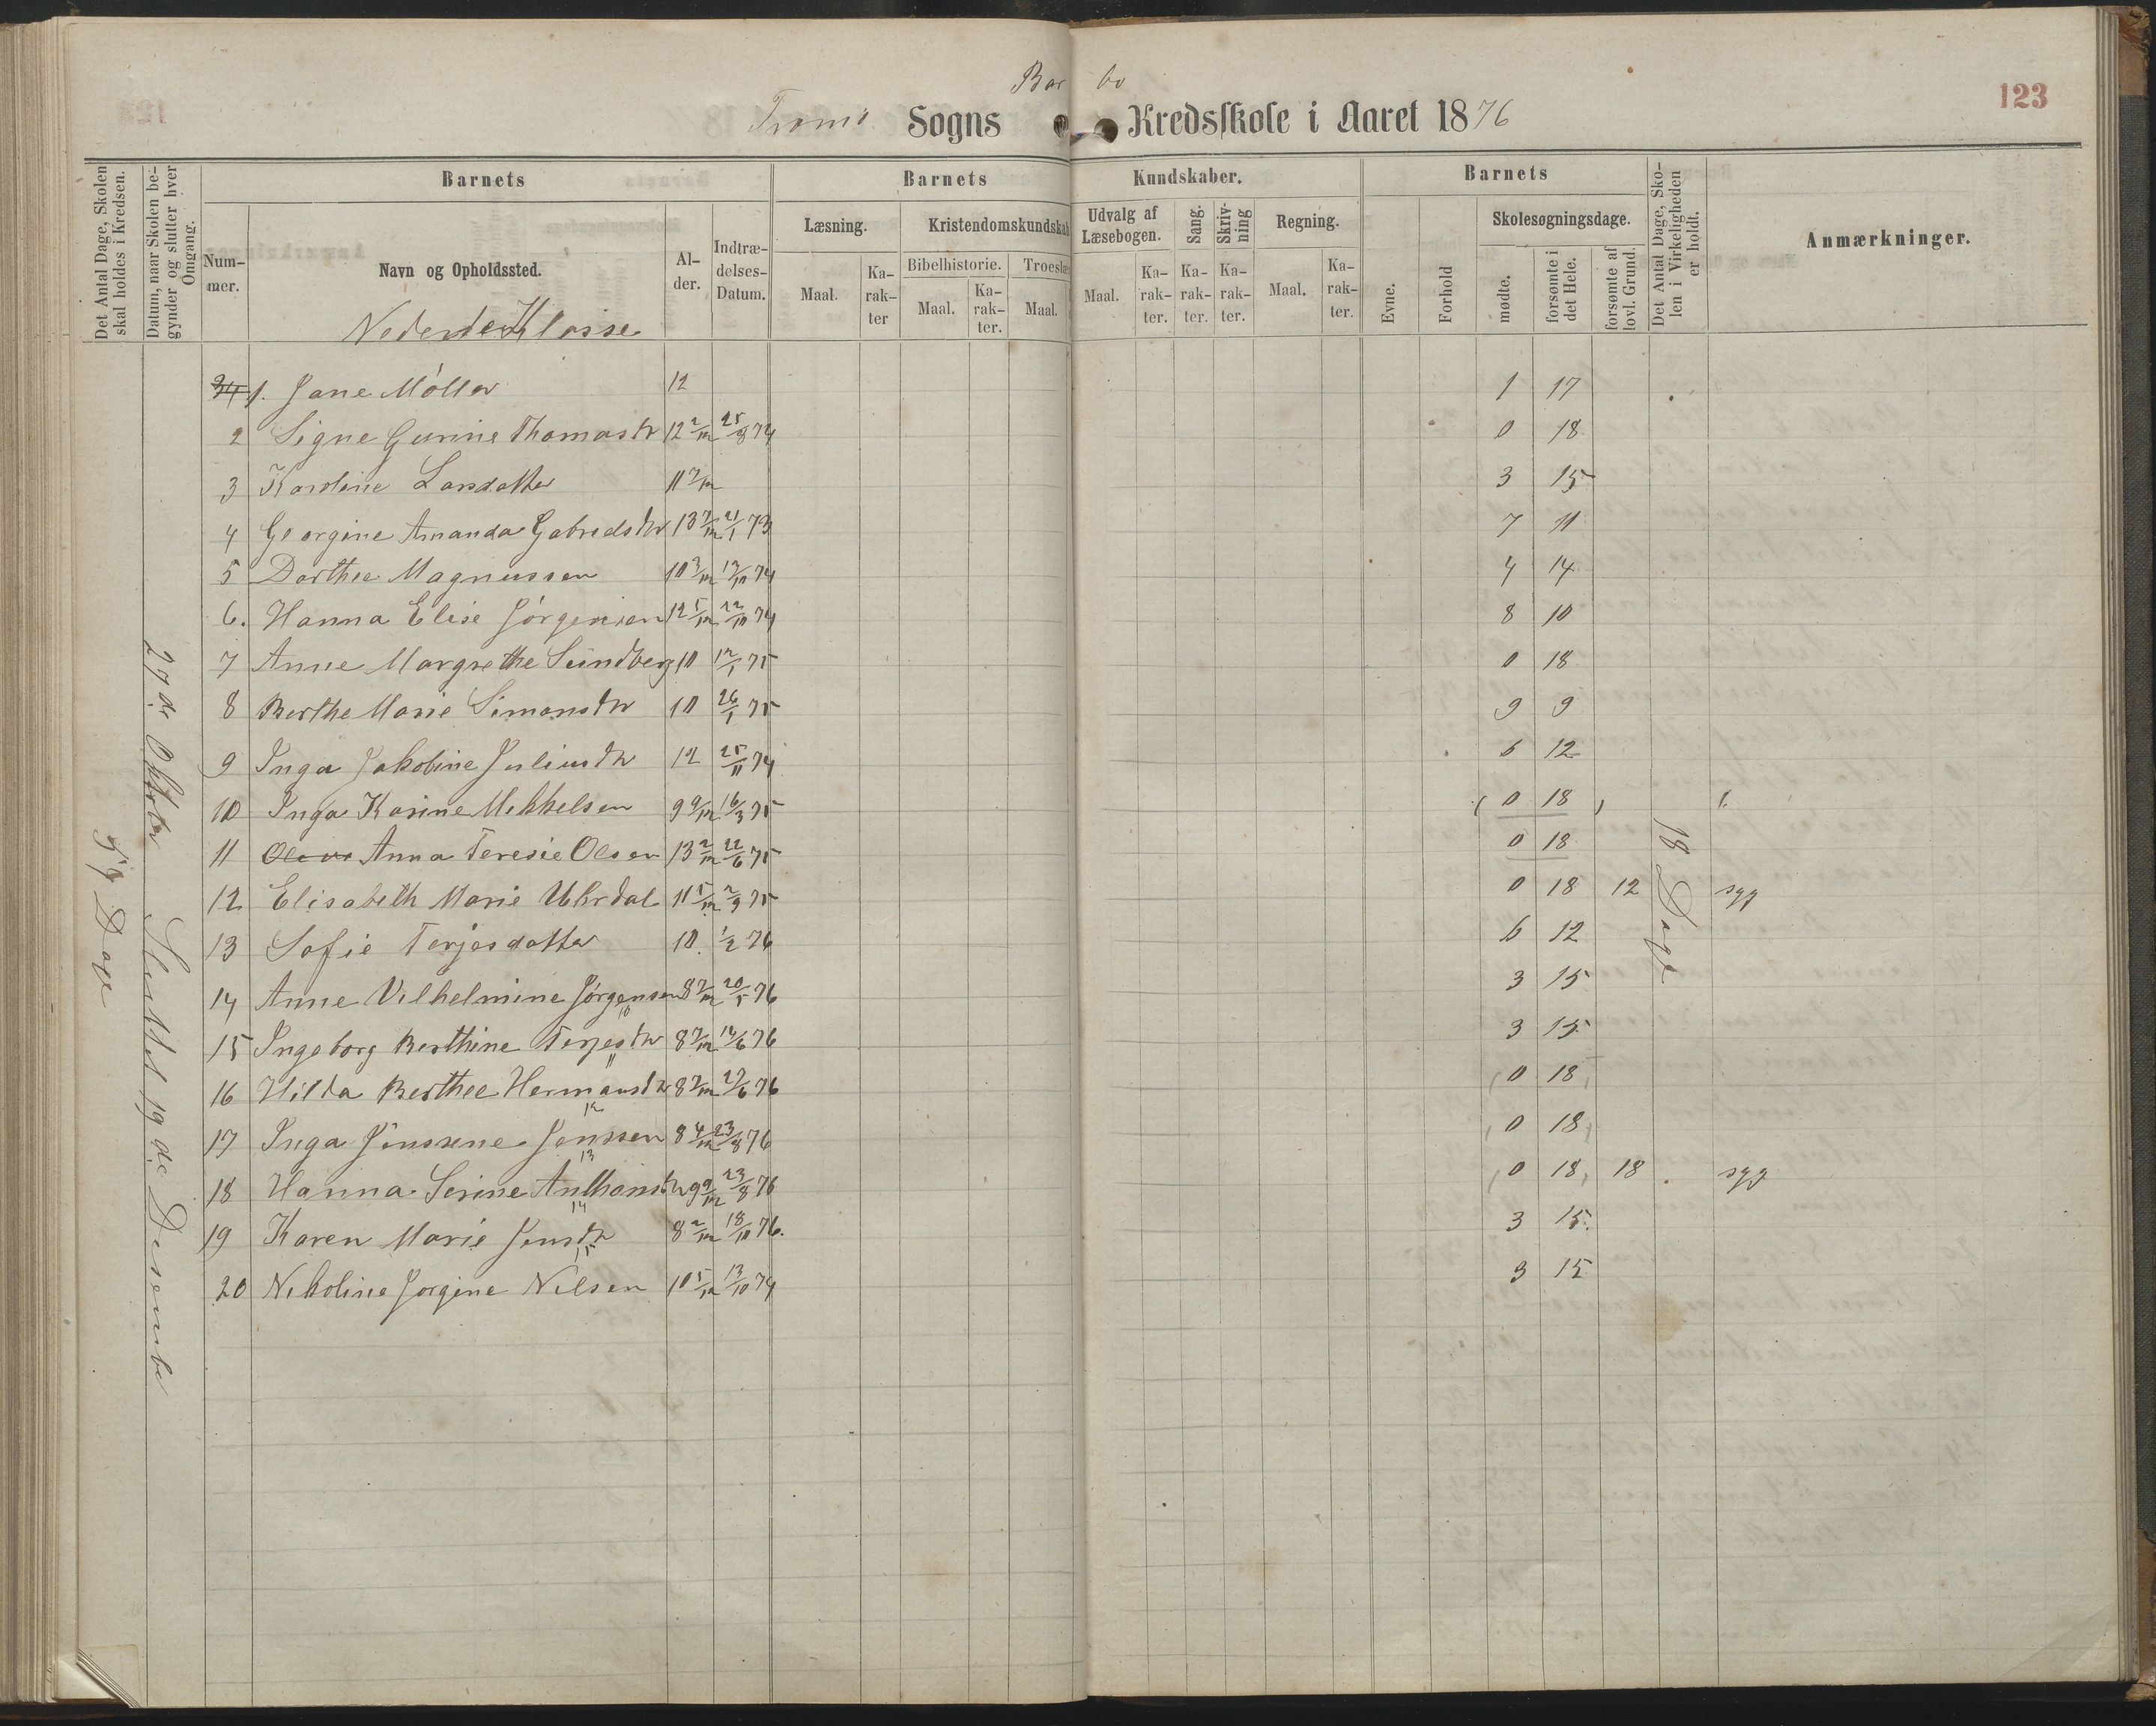 Barbo
123
Tromø Sogns Kredsskole i Aaret 1876
Det Antal Dage, Skolen skal holdes i Kredsen.
Datum, naar Skolen begynder og slutter hver Omgang.
Barnets
Barnets Kundskaber.
Barnets
Det Antal Dage, Skolen i Virkeligheden er holdt.
Anmærkninger.
Nummer.
Navn og Opholdssted.
Alder.
Indtrædelses-Datum.
Læsning.
Kristendomskundskab
Udvalg af Læsebogen.
Sang.
Skrivning
Regning.
Evne.
Forhold
Skolesøgningsdage.
Maal. Karakter
Bibelhistorie. Troeslæ
Maal. Karakter. Maal.
Maal. Karakter. Karakter. Karakter. Maal. Karakter.
mødte. forsømte i det Hele. forsømte af lovl. Grund.
Nederde Klasse
27de Oktober Sluttet 19de Desembe
Dage
18 Dage
34 1. Jane Møller 12 1 17
2 Signe Gunine Thomasdtr 12 2/12 25/8 74 0 18
3 Karoline Larsdatter 11 7/12 3 15
4 Georgine Amanda Gabrielsdtr 13 7/12 21/1 73 7 11
5 Dorthea Magnussen 10 3/12 13/10 74 4 14
6. Hanna Elise Jörgensen 12 5/12 22/10 74 8 10
7 Anne Margrethe Sundberg 10 12/1 75 0 18
8 Berthe Marie Simonsdtr 10 26/1 75 9 9
9 Inga Jakobine Juliusdtr 12 25/11 74 6 12
10 Inga Karine Mikkelsen 9 9/12 16/3 75 (0 18)
11 Olava Anna Teresie Olsen 13 2/12 22/6 75 0 18
12 Elisabeth Marie Uhrdal 11 5/12 2/9 75 0 18 12 syg
13 Sofie Terjesdatter 10. 1/2 76 6 12
14 Anne Vilhelmine Jörgensen 8 7/12 20/5 76 3 15
10
15 Ingeborg Berthine Terjesdtr 8 7/12 14/6 76 3 15
11
16 Hilda Berthee Hermansdtr 8 7/12 27/6 76 (0 18)
12
17 Inga Jenssene Jenssen 8 4/12 23/8 76 (0 18)
13
18 Hanna Serine Anthonsdtr 9 9/12 23/8 76 (0 18) 18 syg
14
19 Karen Marie Jensdtr 8 2/12 18/10 76. 3 15.
15
20 Nikoline Jorgine Nilsen 10 5/12 13/10 74 3 15